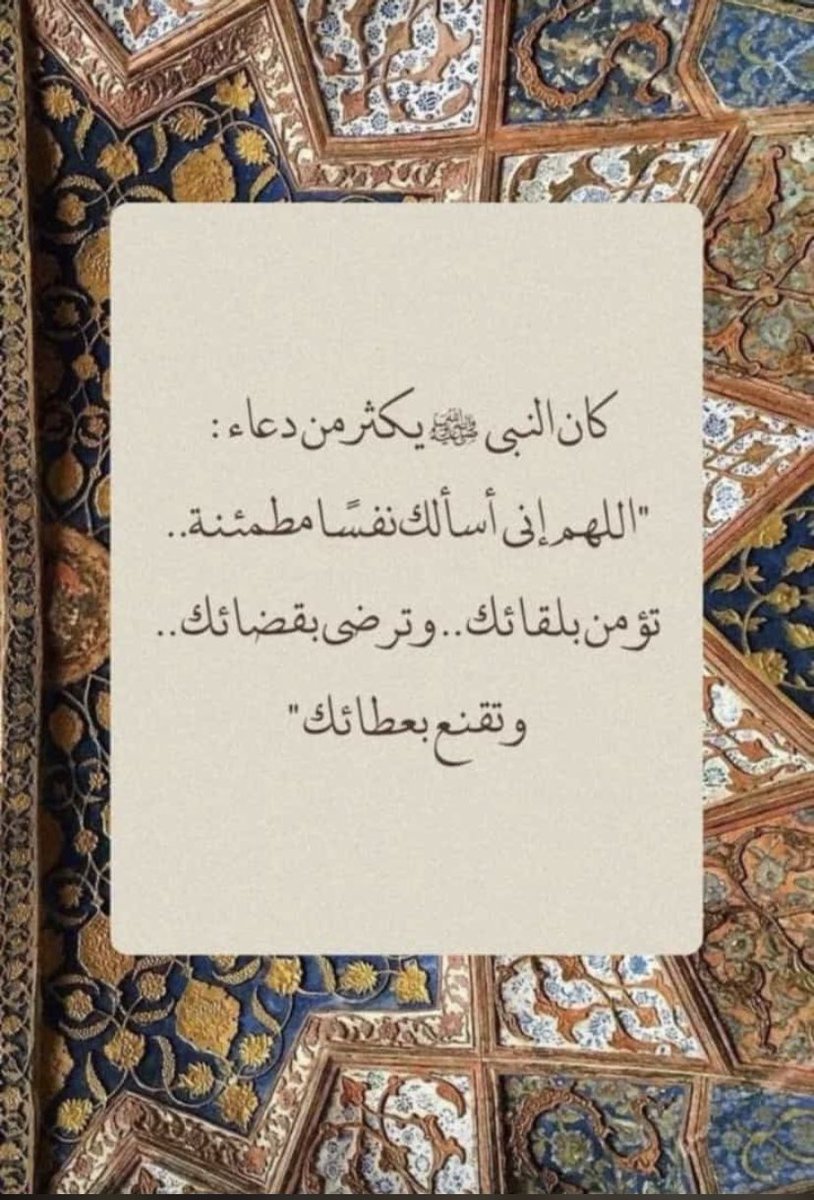 كان النبى ﷺ يكثر من دعاء :
"اللهم إنى أسألك نفسًا مطمئنة..
تؤمن بلقائك..وترضى بقضائك..
وتقنع بعطائك"